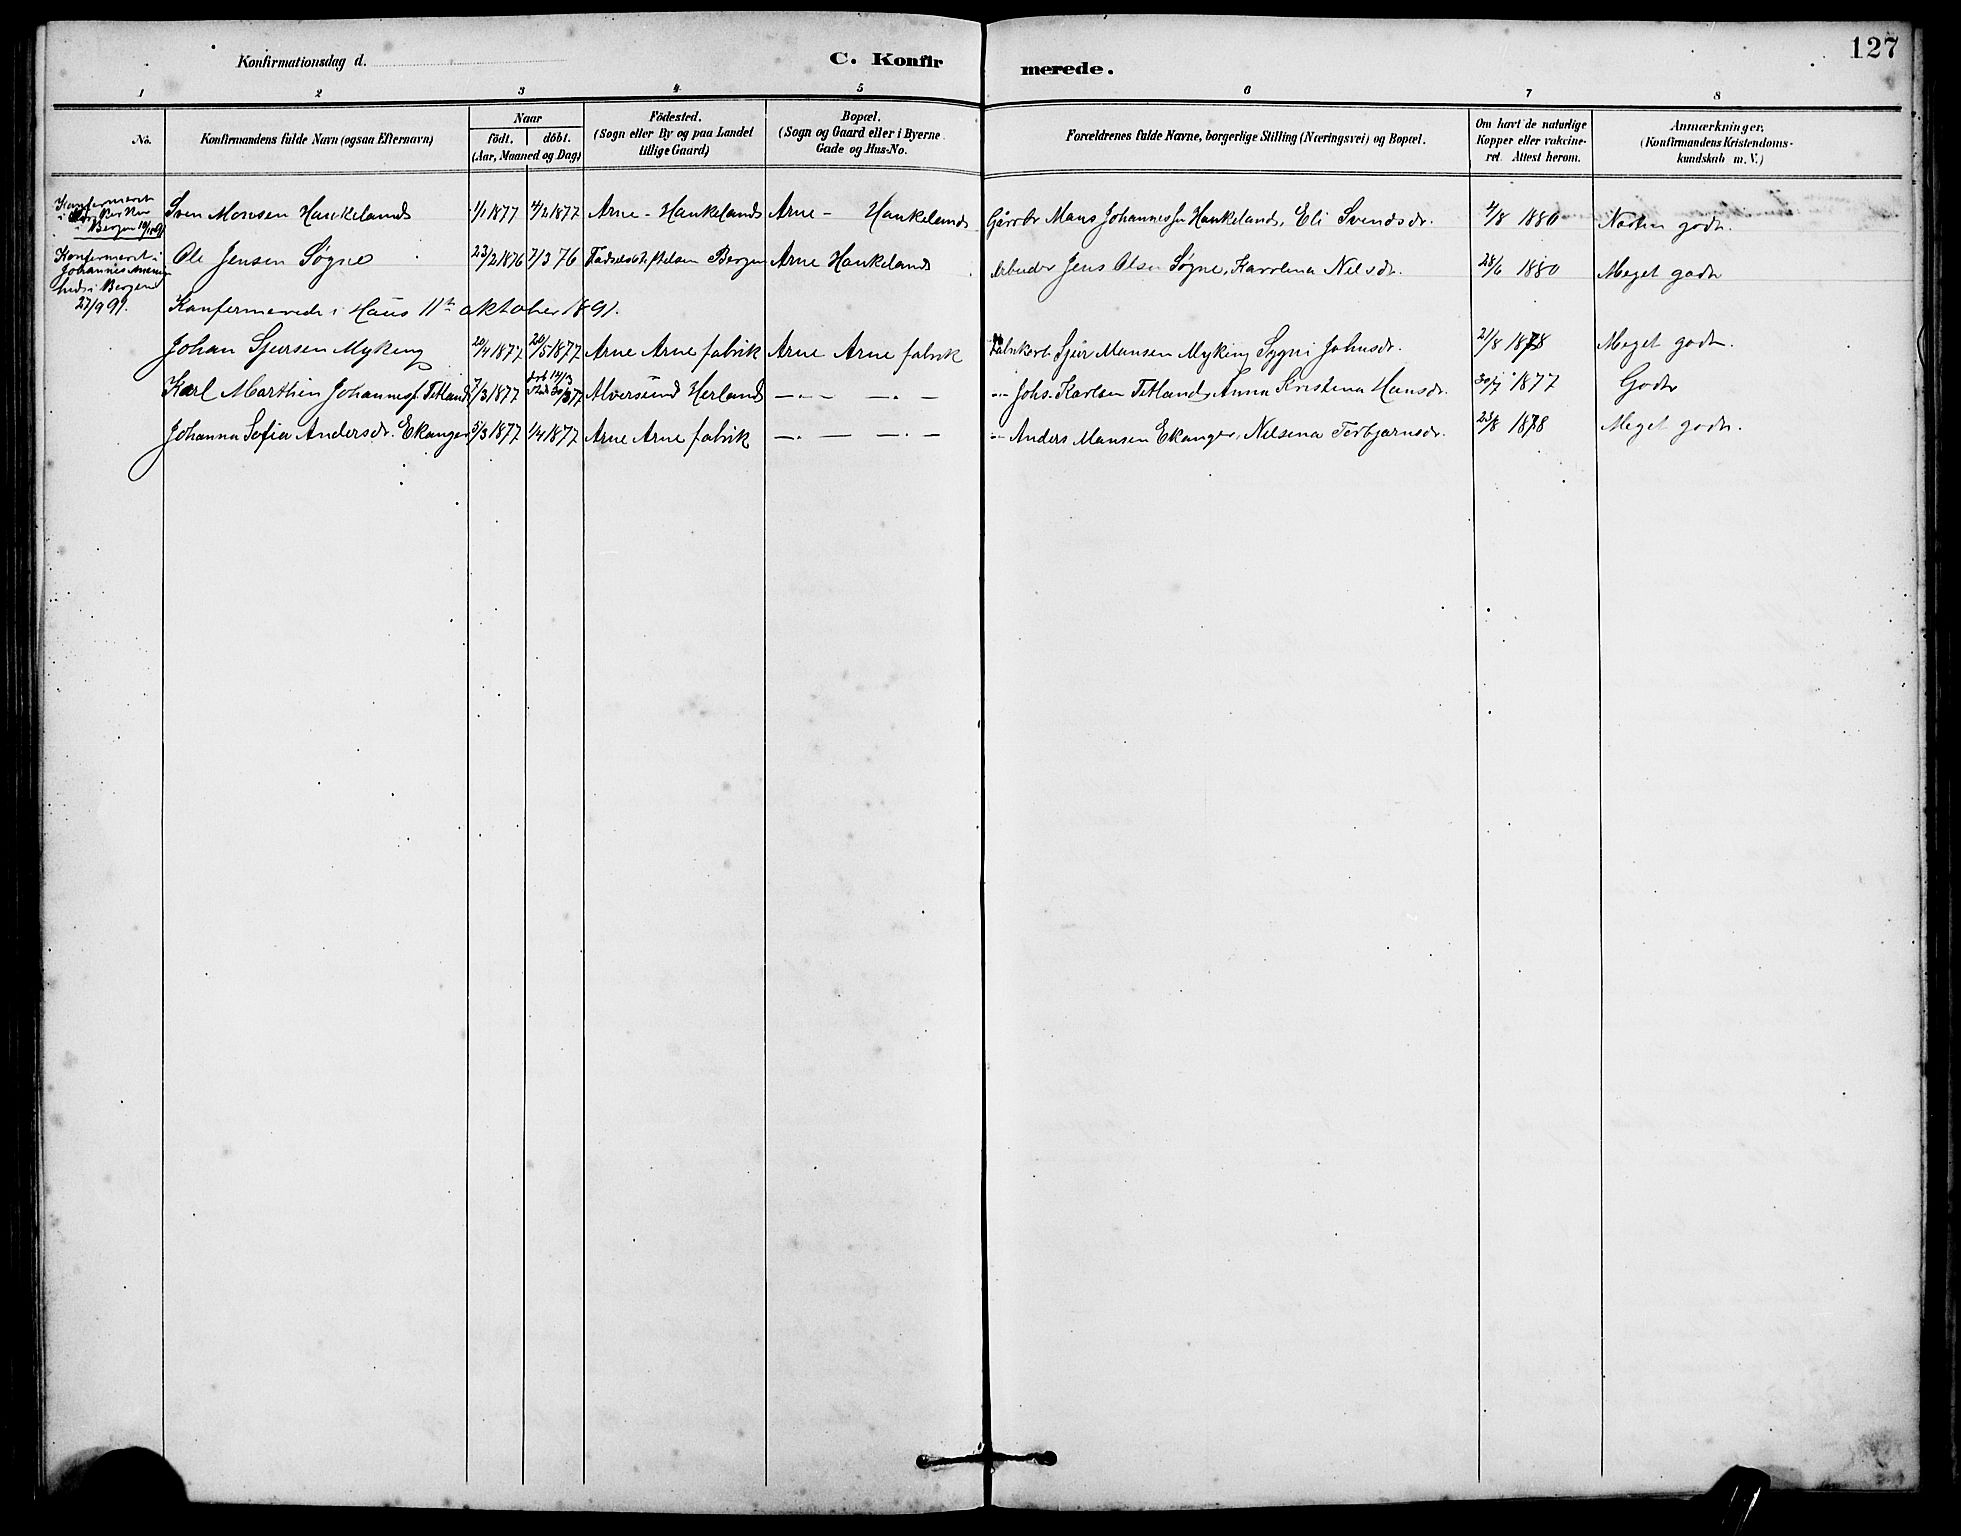 127
Konfirmationsdag d.
C. Konfirmerede.
1 2 3 4 5 6 7 8
No.
Konfirmandens fulde Navn (ogsaa Efternavn)
Naar
födt. döbt.
(Aar, Maaned og Dag)
Födested.
(Sogn eller By og paa Landet
tillige Gaard)
Bopæl.
(Sogn og Gaard eller i Byerne
Gade og Hus-No.
Forældrenes fulde Navne, borgerlige Stilling (Næringsvei) og Bopæl.
Om havt de naturlige
Kopper eller vakcine-
ret. Attest herom.
Anmærkninger.
(Konfirmandens Kristendoms-
kundskab m. V.)
Konfermeret
i
i Bergen
Sven Monsen Haukeland 1/1 1877 4/2 1877 Arne - Haukeland Arne - Haukeland Gårdbr Mons Johannessen Haukeland, Eli Svendsdr. 4/8 1880 godt.
Konfermeret i
Johannes
i Bergen
27/9 91.
Ole Jensen Søgne 23/2 1876 7/3 76 Fødselsstiftelsen Bergen Arne Haukeland Arbeider Jens Olsen Søgne, Karolina Nilsdr. 28/6 1880 Meget godt
Konfermerede i Haus 11te oktober 1891.
Johan Sjursen Myking 20/4 1877 20/5 1877 Arne Arne fabrik Arne Arne fabrik Fabrikarb. Sjur Mansen Myking Sygni Johnsdr. 21/8 1878 Meget godt.
Karl Marthin Johannesf. Tetland 7/3 1877 Alversund Herland —.— —.— Johs. Karlsen Tetland, Anna Kristina Hansdr. 30/7 1877 Godt
Johanna Sofia Andersdr. Ekanger 5/3 1877 1/4 1877 Arne Arne fabrik —.— —.— Anders Mansen Ekanger, Nilsina Torbjørnsdr. 23/8 1878 Meget godt.